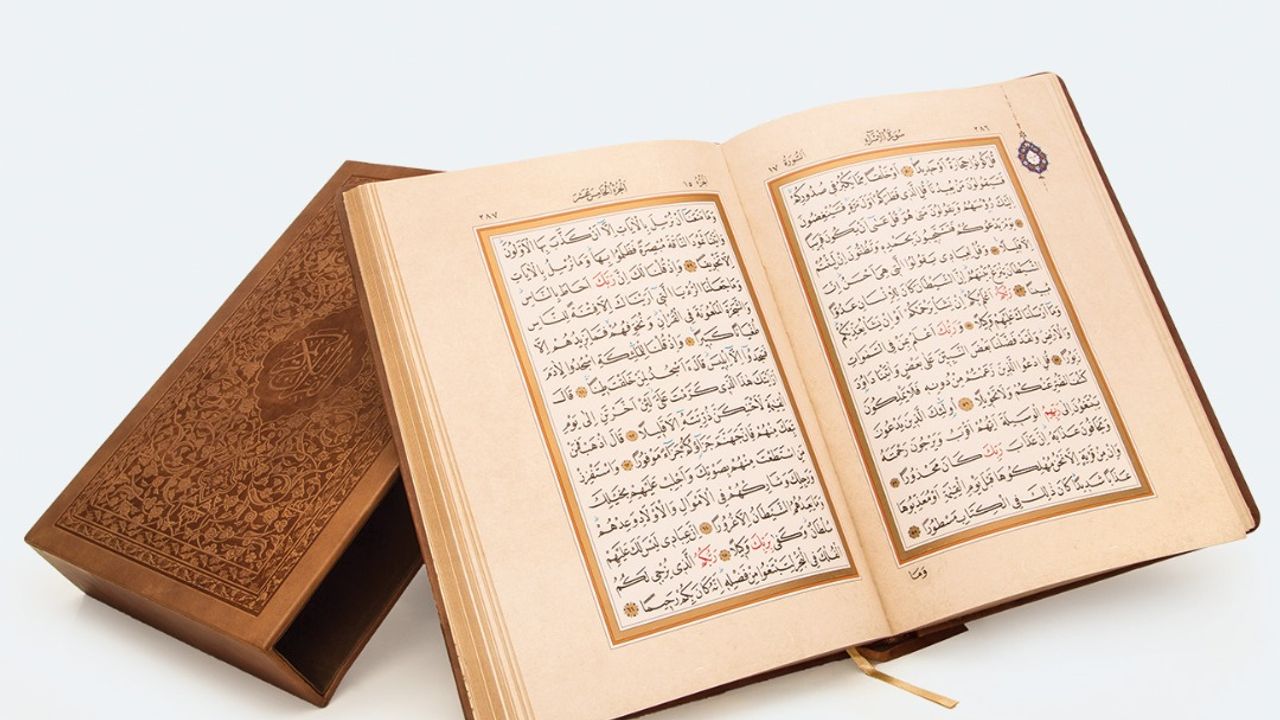 ٢٨٦ سورة الإسراء السورة ١٧
قُلْ كُونُوا حِجَارَةً اَوْ حَدِيدًا اَوْ خَلْقًا مِمَّا يَكْبُرُ فِي صُدُورِكُمْ
فَسَيَقُولُونَ مَنْ يُعِيدُنَا قُلِ الَّذِي فَطَرَكُمْ اَوَّلَ مَرَّةٍ فَسَيُنْغِضُونَ
اِلَيْكَ رُؤُسَهُمْ وَيَقُولُونَ مَتٰى هُوَ قُلْ عَسٰٓى اَنْ يَكُونَ قَرِيبًا
يَوْمَ يَدْعُوكُمْ فَتَسْتَجِيبُونَ بِحَمْدِهِ وَتَظُنُّونَ اِنْ لَبِثْتُمْ
اِلَّا قَلِيلًا وَقُلْ لِعِبَادِي يَقُولُوا الَّتِي هِيَ اَحْسَنُ اِنَّ
الشَّيْطَانَ يَنْزَغُ بَيْنَهُمْ اِنَّ الشَّيْطَانَ كَانَ لِلْاِنْسَانِ عَدُوًّا
مُبِينًا رَبُّكُمْ اَعْلَمُ بِكُمْ اِنْ يَشَأْ يَرْحَمْكُمْ اَوْ اِنْ يَشَأْ يُعَذِّبْكُمْ
وَمَا اَرْسَلْنَاكَ عَلَيْهِمْ وَكِيلًا وَرَبُّكَ اَعْلَمُ بِمَنْ فِي السَّمٰوَاتِ
وَالْاَرْضِ وَلَقَدْ فَضَّلْنَا بَعْضَ النَّبِيِّنَ عَلٰى بَعْضٍ وَاٰتَيْنَا دَاوُدَ
زَبُورًا قُلِ ادْعُوا الَّذِينَ زَعَمْتُمْ مِنْ دُونِهِ فَلَا يَمْلِكُونَ
كَشْفَ الضُّرِّ عَنْكُمْ وَلَا تَحْوِيلًا اُولٰٓئِكَ الَّذِينَ يَدْعُونَ
يَبْتَغُونَ اِلٰى رَبِّهِمُ الْوَسِيلَةَ اَيُّهُمْ اَقْرَبُ وَيَرْجُونَ رَحْمَتَهُ
وَيَخَافُونَ عَذَابَهُ اِنَّ عَذَابَ رَبِّكَ كَانَ مَحْذُورًا
وَاِنْ مِنْ قَرْيَةٍ اِلَّا نَحْنُ مُهْلِكُوهَا قَبْلَ يَوْمِ الْقِيٰمَةِ اَوْ مُعَذِّبُوهَا
عَذَابًا شَدِيدًا كَانَ ذٰلِكَ فِي الْكِتَابِ مَسْطُورًا
وَمَا
الجزء ١٥ الجزء الخامس عشر ٢٨٧
وَمَا مَنَعَنَا اَنْ نُرْسِلَ بِالْاٰيَاتِ اِلَّا اَنْ كَذَّبَ بِهَا الْاَوَّلُونَ
وَاٰتَيْنَا ثَمُودَ النَّاقَةَ مُبْصِرَةً فَظَلَمُوا بِهَا وَمَا نُرْسِلُ بِالْاٰيَاتِ
اِلَّا تَخْوِيفًا وَاِذْ قُلْنَا لَكَ اِنَّ رَبَّكَ اَحَاطَ بِالنَّاسِ
وَمَا جَعَلْنَا الرُّءْيَا الَّتِي اَرَيْنَاكَ اِلَّا فِتْنَةً لِلنَّاسِ
وَالشَّجَرَةَ الْمَلْعُونَةَ فِي الْقُرْاٰنِ وَنُخَوِّفُهُمْ فَمَا يَزِيدُهُمْ اِلَّا
طُغْيَانًا كَبِيرًا وَاِذْ قُلْنَا لِلْمَلٰٓئِكَةِ اسْجُدُوا لِاٰدَمَ
فَسَجَدُوا اِلَّا اِبْلِيسَ قَالَ ءَاَسْجُدُ لِمَنْ خَلَقْتَ طِينًا قَالَ
اَرَاَيْتَكَ هٰذَا الَّذِي كَرَّمْتَ عَلَيَّ لَئِنْ اَخَّرْتَنِ اِلٰى يَوْمِ
الْقِيٰمَةِ لَاَحْتَنِكَنَّ ذُرِّيَّتَهُ اِلَّا قَلِيلًا قَالَ اذْهَبْ فَمَنْ
تَبِعَكَ مِنْهُمْ فَاِنَّ جَهَنَّمَ جَزَاؤُكُمْ جَزَاءً مَوْفُورًا وَاسْتَفْزِزْ
مَنِ اسْتَطَعْتَ مِنْهُمْ بِصَوْتِكَ وَاَجْلِبْ عَلَيْهِمْ بِخَيْلِكَ
وَرَجِلِكَ وَشَارِكْهُمْ فِي الْاَمْوَالِ وَالْاَوْلَادِ وَعِدْهُمْ
وَمَا يَعِدُهُمُ الشَّيْطَانُ اِلَّا غُرُورًا اِنَّ عِبَادِي لَيْسَ لَكَ عَلَيْهِمْ
سُلْطَانٌ وَكَفٰى بِرَبِّكَ وَكِيلًا رَبُّكُمُ الَّذِي يُزْجِي لَكُمُ
الْفُلْكَ فِي الْبَحْرِ لِتَبْتَغُوا مِنْ فَضْلِهِ اِنَّهُ كَانَ بِكُمْ رَحِيمًا